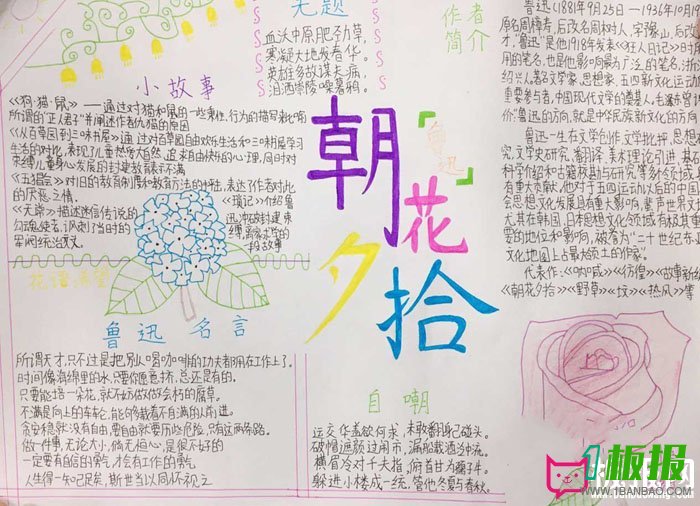 无题
血沃中原肥劲草,
寒凝大地发春华。
英雄多故谋夫病,
泪洒崇陵噪暮鸦。
作者
简介
鲁迅(1881年9月25日—1936年10月19
原名周樟寿,后改名周树人,字豫山,后改
才,"鲁迅"是他1918年发表《狂人日记》时
用的笔名,也是他影响最为广泛的笔名,浙
绍兴人。著名文学家、思想家、五四新文化运动
重要参与者,中国现代文学的奠基人。毛泽东曾
价:"鲁迅的方向,就是中华民族新文化的方向
鲁迅一生在文学创作、文学批评、思想
究、文学史研究、翻译、美术理论引进、基
科学介绍和古籍校勘与研究等多个领域
有重大贡献。他对于五四运动以后的中国
会思想文化发展具有重大影响,蜚声世界文
尤其在韩国、日本思想文化领域有极其重
要的地位和影响,被誉为"二十世纪东
文化地图上占最大领土的作家"。
代表作:《呐喊》《彷徨》《故事新
《朝花夕拾》《野草》《坟》《热风》等
小故事
《狗·猫·鼠》——通过对猫和鼠的一些秉性、行为的描写来比喻
所谓的"正人君子"并阐述作者仇猫的原因
《从百草园到三味书屋》通过对百草园自由欢乐生活和三味书屋学习
生活的对比,表现了儿童热爱大自然,追求自由快乐的心理,同时对
束缚儿童身心发展的封建教育表示不满
《五猖会》对旧的教育制度和教育方法的种种,表达了作者对此
的厌恶之情。
《琐记》介绍鲁
《无常》描述迷信传说的
迅冲破封建束
勾魂使者,讽刺了当时的
缚,离家求学的
一段故事
「鲁迅」
朝
花
夕
拾
花语寄望
鲁迅 名言
所谓天才,只不过是把别人喝咖啡的功夫都用在工作上了。
时间像海绵里的水,只要你愿意挤,总还是有的。
只要能培一朵花,就不妨做做会朽的腐草。
不满是向上的车轮,能够载着不自满的人前进。
贪安稳就没有自由,要自由就要历些危险。只有这两条路。
做一件事,无论大小,倘无恒心,是很不好的
一定要有自信的勇气,才会有工作的勇气
人生得一知己足矣,斯世当以同怀视之
自嘲
运交华盖欲何求,未敢翻身已碰头。
破帽遮颜过闹市,漏船载酒泛中流。
横眉冷对千夫指,俯首甘为孺子牛。
躲进小楼成一统,管他冬夏与春秋。
1板报
WWW.1BANBAO.COM